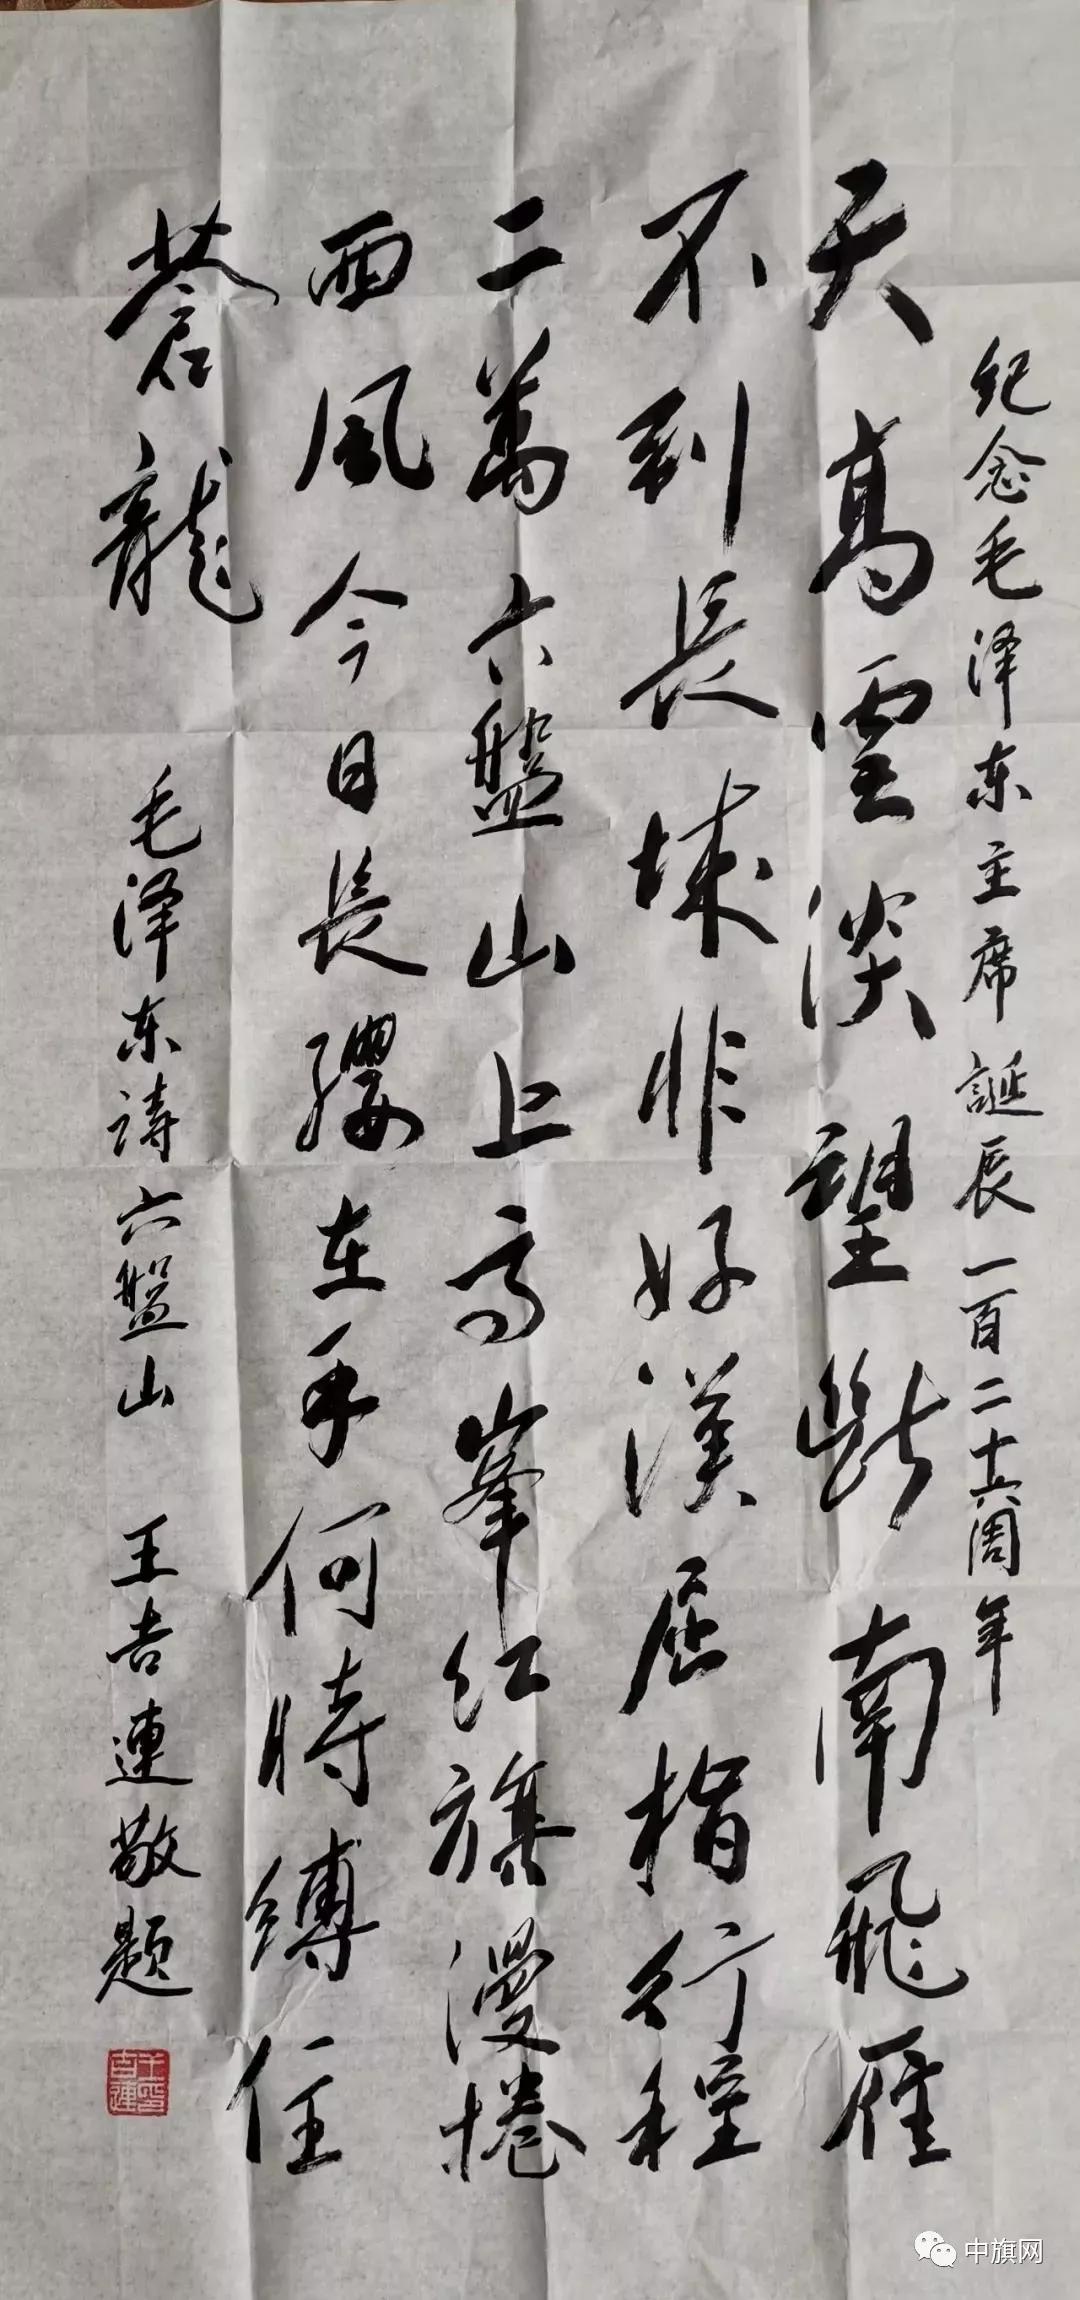 纪念毛泽东主席誕辰一百二十六周年
天高雲淡望斷南飛雁
不到長城非好漢屈指行程
二萬六盤山上高峯红旗漫捲
西風今日長纓在手何時縛住
蒼龍
毛泽东诗六盤山 王吉連敬题
中旗网